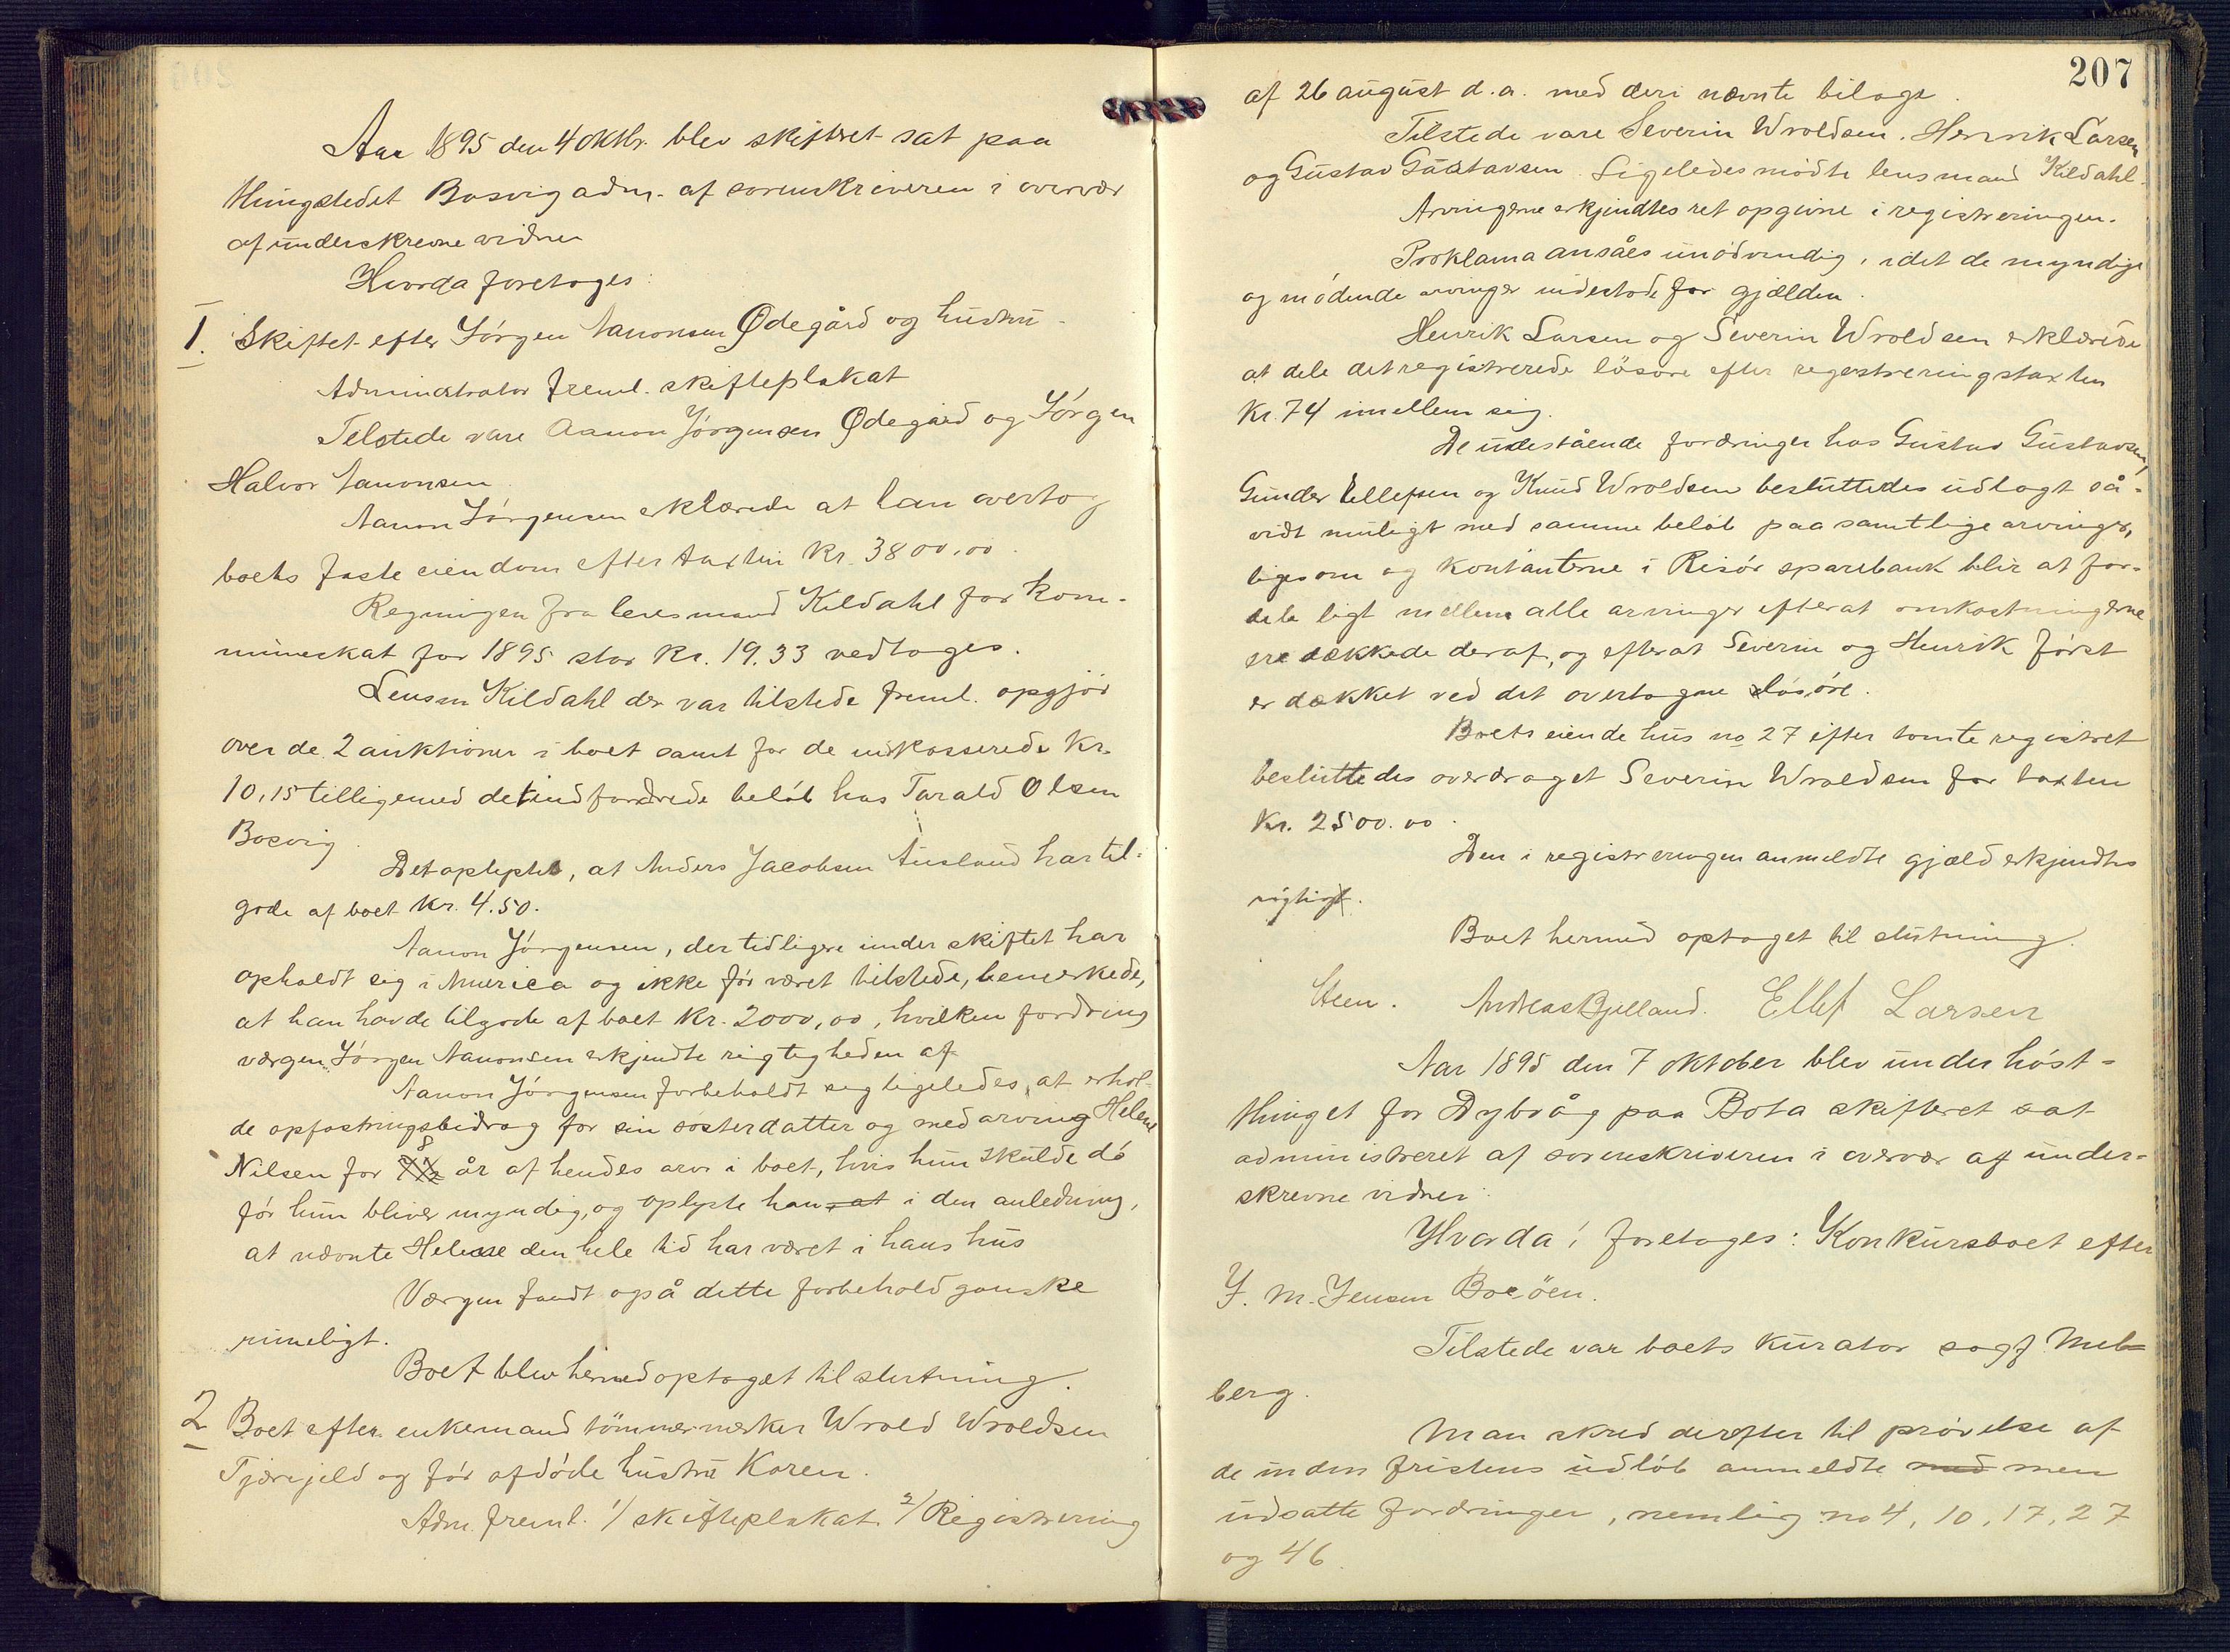 Aar 1895 den 4 oktbr. blev skiftret sat paa
thingstedet Bosvig adm. af sorenskriveren i overvær
af underskrevne vidner
Hvorda foretoges:
1. Skiftet efter Jörgen Aanonsen Ødegård og hustru.
Administrator freml. skifteplakat
Tilstede vare Aanon Jörgensen Ødegård og Jörgen
Halvor Aanonsen.
Aanon Jörgensen erklærede at han overtog
boets faste eiendom efter taxten Kr. 3800,00.
Regningen fra lensmand Kildahl for kom-
muneskat for 1895 stor Kr. 19.33 vedtoges.
Lensm Kildahl der var tilstede freml. opgjör
over de 2 auktioner i boet samt for de indkasserede Kr.
10,15 tilligemed det indfordrede belöb hos Tarald Olsen
Bosvig.
Det oplystes, at Anders Jacobsen Ausland har til-
gode af boet Kr. 4.50.
Aanon Jörgensen, der tidligere under skiftet har
opholdt sig i America og ikke för været tilstede, bemerkede,
at han havde tilgode af boet Kr. 2000,00, hvilken fordring
værgen Jörgen Aanonsen erkjendte rigtigheden af
Aanon Jörgensen forbeholdt sig ligeledes, at erhol-
de opfostringsbidrag for sin sösterdatter og medarving Helene
Nilsen for 8 år af hendes arv i boet, hvis hun skulde dö
för hun bliver myndig, og oplyste han, at i den anledning,
at nævnte Helene den hele tid har været i hans hus
Værgen fandt også dette forbehold ganske
rimeligt.
Boet blev hermed optaget til slutning.
2 Boet efter enkemand tömmermerker Wrold Wroldsen
Tjærefjeld og för afdöde hustru Karen.
Adm. freml. 1/ skifteplakat 2/ Registrering
207
af 26 august d.a. med deri nævnte bilage.
Tilstede vare Severin Wroldsen. Henrik Larsen
og Gustav Gustavsen. Ligeledes mödte lensmand Kildahl.
Arvingerne erkjendtes ret opgivne i registreringen.
Proklama ansåes unödvendig, idet de myndige
og mödende arvinger indestode for gjælden.
Henrik Larsen og Severin Wroldsen erklærede
at dele det registrerede lösöre efter registreringstaxten
Kr. 74 imellem sig.
De udestående fordringer hos Gustav Gustavsen,
Gunder Ellefsen og Knud Wroldsen besluttedes udlagt så-
vidt muligt med samme belöb paa samtlige arvinger,
ligesom og kontanterne i Risör sparebank blir at for-
dele ligt mellem alle arvinger efterat omkostningerne
ere dækkede deraf, og efterat Severin og Henrik först
er dækket ved det overtagne lösöre.
Boets eiende hus no 27 efter tomteregistret
besluttedes overdraget Severin Wroldsen for taxten
Kr. 2500.00.
Den i registreringen anmeldte gjæld erkjendtes
rigtig.
Boet hermed optaget til slutning.
Steen. Andreas Bjelland. Ellef Larsen
Aar 1895 den 7 oktober blev under höst-
thinget for Dybvåg paa Bota skifteret sat
administreret af sorenskriveren i overvær af under-
skrevne vidner:
Hvorda: foretoges: Konkursboet efter
J. M. Jensen Bosöen.
Tilstede var boets kurator sagf.
berg.
Man skred derefter til prövelse af
de inden fristens udlöb anmeldte med men
udsatte fordringer, nemlig no 4, 10, 17, 27
og 46.